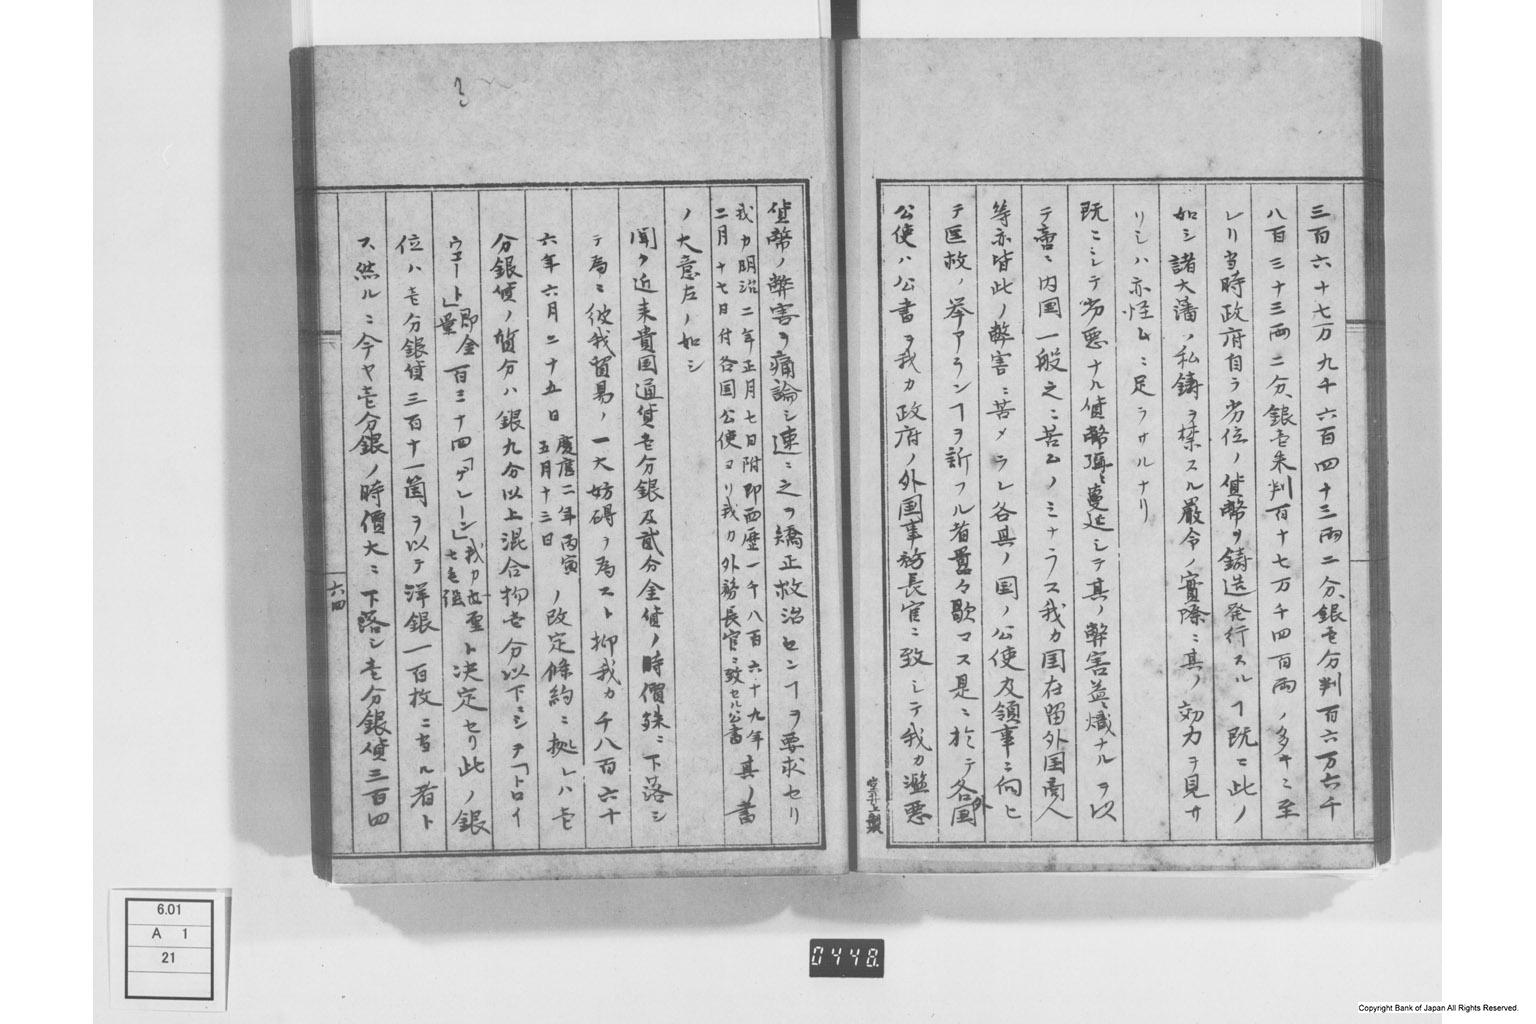 三百六十七万九千六百四十三両二分、銀壱分判百六万六千
八百三十三両二分、銀壱朱判百十七万千四百両ノ多キニ至
レリ当時政府自ラ劣位ノ貨幣ヲ鋳造発行スルヿ既ニ此ノ
如シ諸大藩ノ私鋳ヲ禁スル厳令ノ實際ニ其ノ効力ヲ見サ
リシハ亦怪ムニ足ラサルナリ
既ニシテ劣悪ナル貨幣漲々蔓延シテ其ノ弊害益熾ナルヲ以
テ啻ニ内国一般之ニ苦ムノミナラス我カ国在留外国商人
等亦皆此ノ弊害ニ苦メラレ各其ノ国ノ公使及領事ニ向ヒ
テ匡救ノ挙アランヿヲ訴フル者囂々歇マス是ニ於テ各外国
公使ハ公書ヲ我カ政府ノ外国事務長官ニ致シテ我カ濫悪
堂井上製
貨幣ノ弊害ヲ痛論シ速ニ之ヲ矯正救治センヿヲ要求セリ
我カ明治二年正月七日附即西歴一千八百六十九年
二月十七日付各国公使ヨリ我カ外務長官ニ致セル公書
其ノ書
ノ大意左ノ如シ
聞ク近来貴国通貨壱分銀及貳分金貨ノ時價殊ニ下落シ
テ為ニ彼我貿易ノ一大妨碍ヲ為スト抑我カ千八百六十
六年六月二十五日
慶應二年丙寅
五月十三日
ノ改定條約ニ拠レハ壱
分銀貨ノ質分ハ銀九分以上混合物壱分以下ニシテ「トロイ
ウエート」
即金
量
百三十四「ゲレーン」
ト決定セリ此ノ銀
位ハ壱分銀貨三百十一箇ヲ以テ洋銀一百枚ニ当ル者ト
ス然ルニ今ヤ壱分銀ノ時價大ニ下落シ壱分銀貨三百四
六四
6.01
A 1
21
0448.
Copyright Bank of Japan All Rights Reserved.